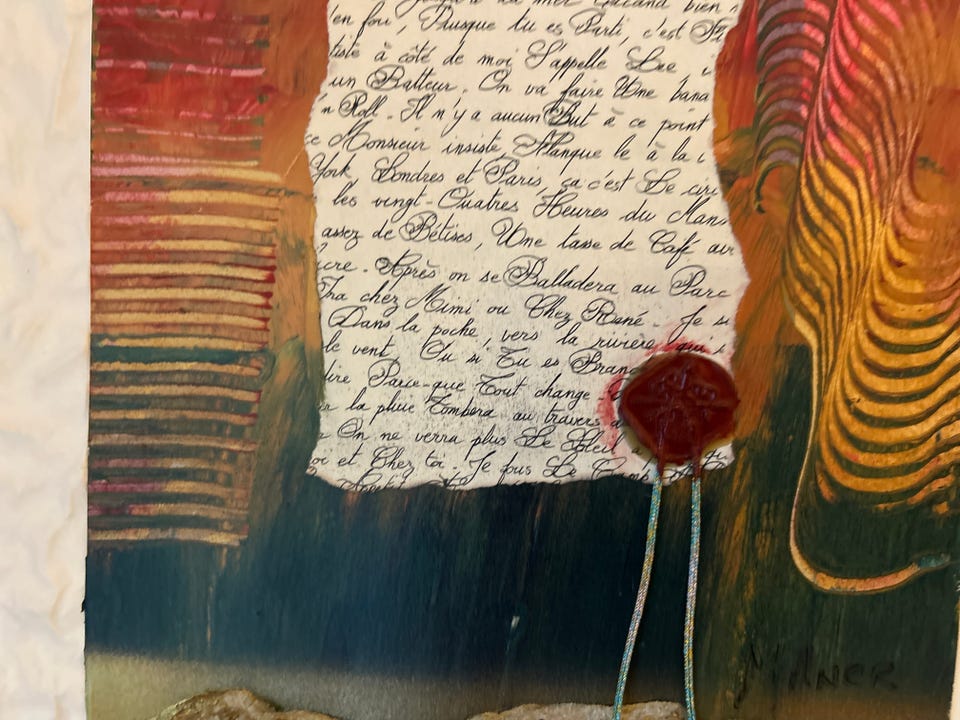 la mer Quand bien
en foi, Plusque tu es Parti, c'est
tiste à côté de moi S'appelle Lee
un Batteur. On va faire Une bana
'n Roll. Il n'y a aucun But à ce point
ce Monsieur insiste, Planque le à la
York Londres et Paris, ça c'est Le cir
les vingt-Quatres Heures du Man
assez de Bétises, Une tasse de Café
cre. Après on se Balladera au Parc
chez Mimi ou Chez René. Je
Dans la poche, vers la rivière
le vent. Ou si Tu es Branc
dire Parce-que Tout change
la pluie Tombera au travers
On ne verra plus Le Soleil
et Chez toi. Je fus Le